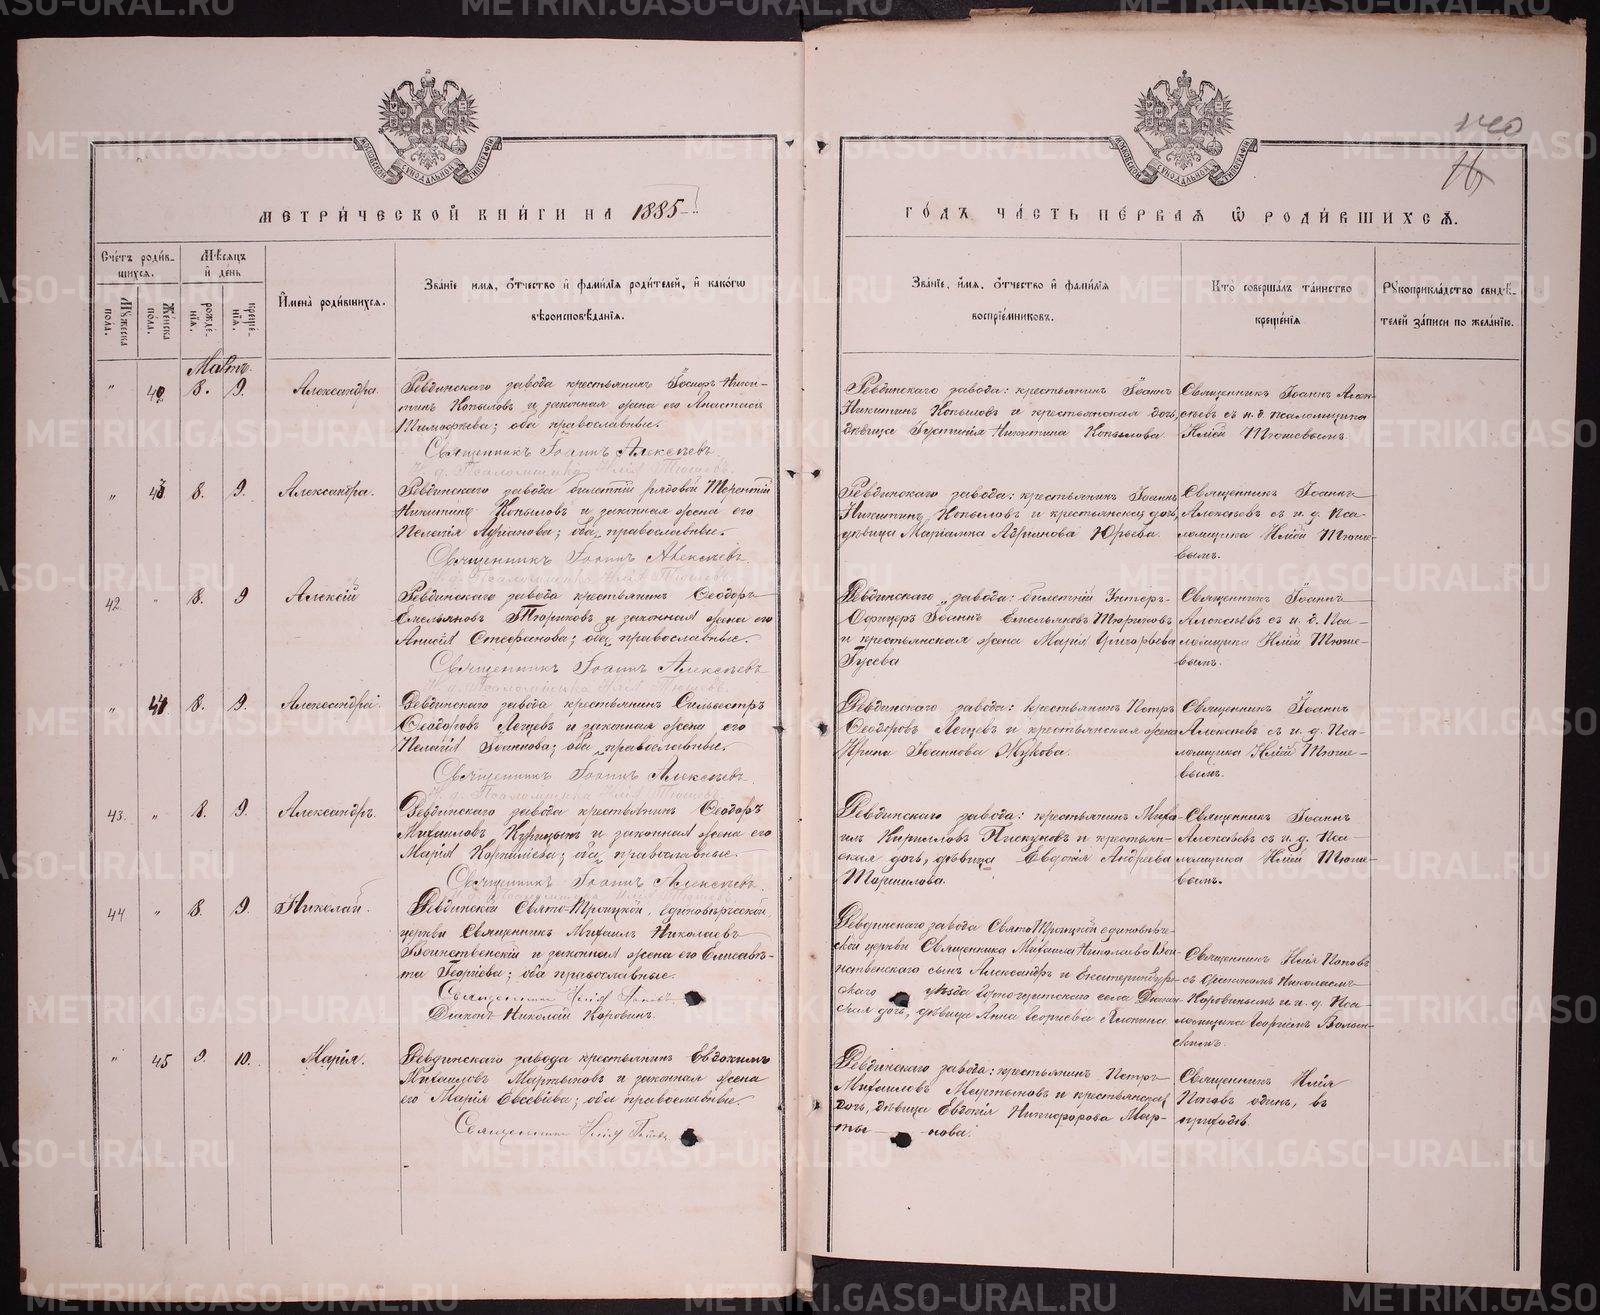 МЕТРИ́ЧЕСКОЙ КНИ́ГИ НА 1885
Сче́тъ роди́в-
шихсѧ.
Мѣ́сѧцъ
и҆ де́нь
Мꙋ́жеска
по́ла.
Же́нска
по́ла.
рожде́-
нїѧ.
креще́-
нїѧ.
И҆мена̀ роди́вшихсѧ.
Зва́нїе имѧ, ѻ҆́тчество и҆ фами́лїѧ роди́телей, и҆ како́гѡ
вѣроисповѣ́данїѧ.
Мартъ.
" 42 8. 9. Александра.
Ревдинскаго завода крестьянинъ Іосифъ Ники-
тинъ Копыловъ и законная жена его Анастасія
Тимофеева; оба православные.
Священникъ Іоаннъ Алексѣевъ
И. д. Псаломщика Илія Тюшевъ.
" 43 8. 9. Александра.
Ревдинскаго завода билетній рядовой Терентій
Никитинъ Копыловъ и законная жена его
Пелагія Адрианова; оба православные.
Священникъ Іоаннъ Алексѣевъ.
И. д. Псаломщика Илія Тюшевъ
42. " 8. 9 Алексій
Ревдинскаго завода крестьянинъ Ѳеодоръ
Емельяновъ Тюриковъ и законная жена его
Анисія Стефанова; оба православные.
Священникъ Іоаннъ Алексѣевъ
И. д. Псаломщика Илія Тюшевъ.
" 44 8. 9. Александра.
Ревдинскаго завода крестьянинъ Сильвестръ
Ѳеодоровъ Летцевъ и законная жена его
Пелагія Іоаннова; оба православные.
Священникъ Іоаннъ Алексѣевъ.
И. д. Псаломщика Илія Тюшевъ.
43. " 8. 9. Александръ.
Ревдинскаго завода крестьянинъ Ѳеодоръ
Михаиловъ Курицынъ и законная жена его
Марія Корнилиева; оба православные.
Священникъ Іоаннъ Алексѣевъ.
44 " 8. 9. Николай.
Ревдинской Свято-Троицкой, единовѣрческой,
церкви Священникъ Михаилъ Николаевъ
Воинственскій и законная жена его Елисаве-
та Георгіева; оба православные.
Священникъ Илія Поповъ.
Діаконъ Николай Коровинъ.
" 45 9. 10. Марія.
Ревдинскаго завода крестьянинъ Евдокимъ
Михаиловъ Мартыновъ и законная жена
его Марія Евсевіева; оба православные.
Священникъ Илія Поповъ
МОСКОВСКОЙ СѴНОДАЛЬНОЙ ТИПОГРАФІИ
ГО́ДЪ ЧА́СТЬ ПЕ́РВАѦ Ѽ РОДИ́ВШИХСѦ.
Зва́нїе, и҆́мѧ, ѻ҆́тчество и҆ фами́лїѧ
воспрїе́мниковъ.
Кто̀ соверша́лъ та́инство
креще́нїѧ
Рꙋкоприкла́дство свидѣ́-
телей за́писи по жела́нїю.
Ревдинскаго завода: крестьянинъ Іоаннъ
Никитинъ Копыловъ и крестьянская дочь,
дѣвица Іустинія Никитина Копылова.
Священникъ Іоаннъ Алек-
сѣевъ съ и. д. псаломщика
Иліей Тюшевымъ.
Ревдинскаго завода: крестьянинъ Іоаннъ
Никитинъ Копыловъ и крестьянская дочь,
дѣвица Маріанна Адріанова Юрьева.
Священникъ Іоаннъ
Алексѣевъ съ и. д. Пса-
ломщика Иліей Тюше-
вымъ.
Ревдинскаго завода: билетній Унтеръ-
Офицеръ Іоаннъ Емельяновъ Тюриковъ
и крестьянская жена Марія Григорьева
Гусева
Священникъ Іоаннъ
Алексѣевъ съ и. д. Пса-
ломщика Иліей Тюше-
вымъ.
Ревдинскаго завода: крестьянинъ Петръ
Ѳеодоровъ Летцевъ и крестьянская жена
Ирина Іоаннова Жукова.
Священникъ Іоаннъ
Алексѣевъ съ и. д. Пса-
ломщика Иліей Тюше-
вымъ.
Ревдинскаго завода: крестьянинъ Миха-
илъ Кирилловъ Пискуновъ и крестьян-
ская дочь, дѣвица Евдокія Андреева
Шоршилова.
Священникъ Іоаннъ
Алексѣевъ съ и. д. Пса-
ломщика Иліей Тюше-
вымъ.
Ревдинскаго завода Свято Троицкой единовѣрче-
ской церкви Священника Михаила Николаева Вои-
нственскаго сынъ Александръ и Екатеринбург-
скаго уѣзда Горнощитскаго села Діакон-
ская дочь, дѣвица Анна Георгіева
Священникъ Илія Поповъ
съ Діакономъ Николаемъ
Коровинымъ и и. д. Пса-
ломщика Георгіемъ Волын-
скимъ.
Ревдинскаго завода: крестьянинъ Петръ
Михаиловъ Мартыновъ и крестьянская
дочь, дѣвица Евдокія Никифорова Мар-
ты нова.
Священникъ Илія
Поповъ одинъ, въ
приходѣ.
METRIKI.GASO-URAL.RU